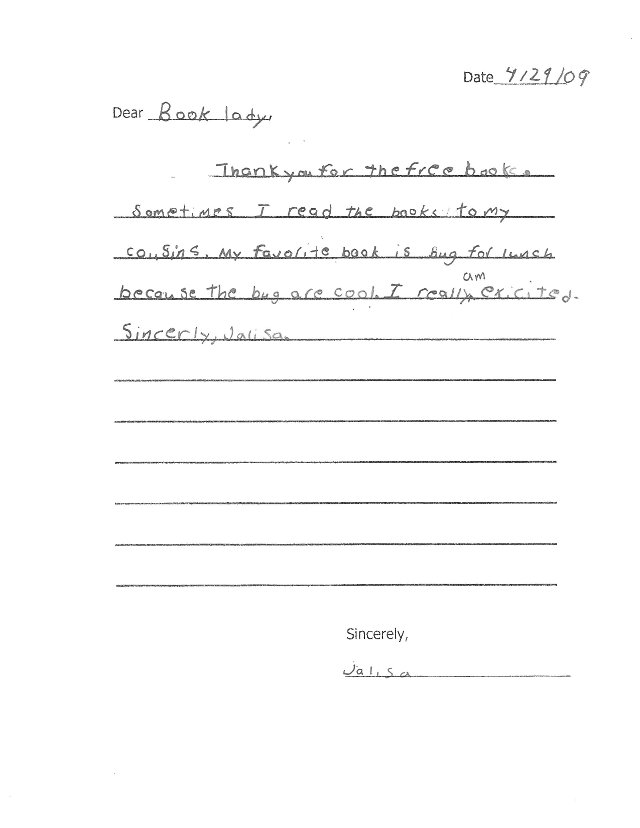 Date 4/29/09
Dear Book lady,
Thank you for the free books.
Sometimes I read the books to my
cousins. My favorite book is Bug for lunch
am
because the bug are cool. I really exicited.
Sincerly, Jalisa.
Sincerely,
Jalisa